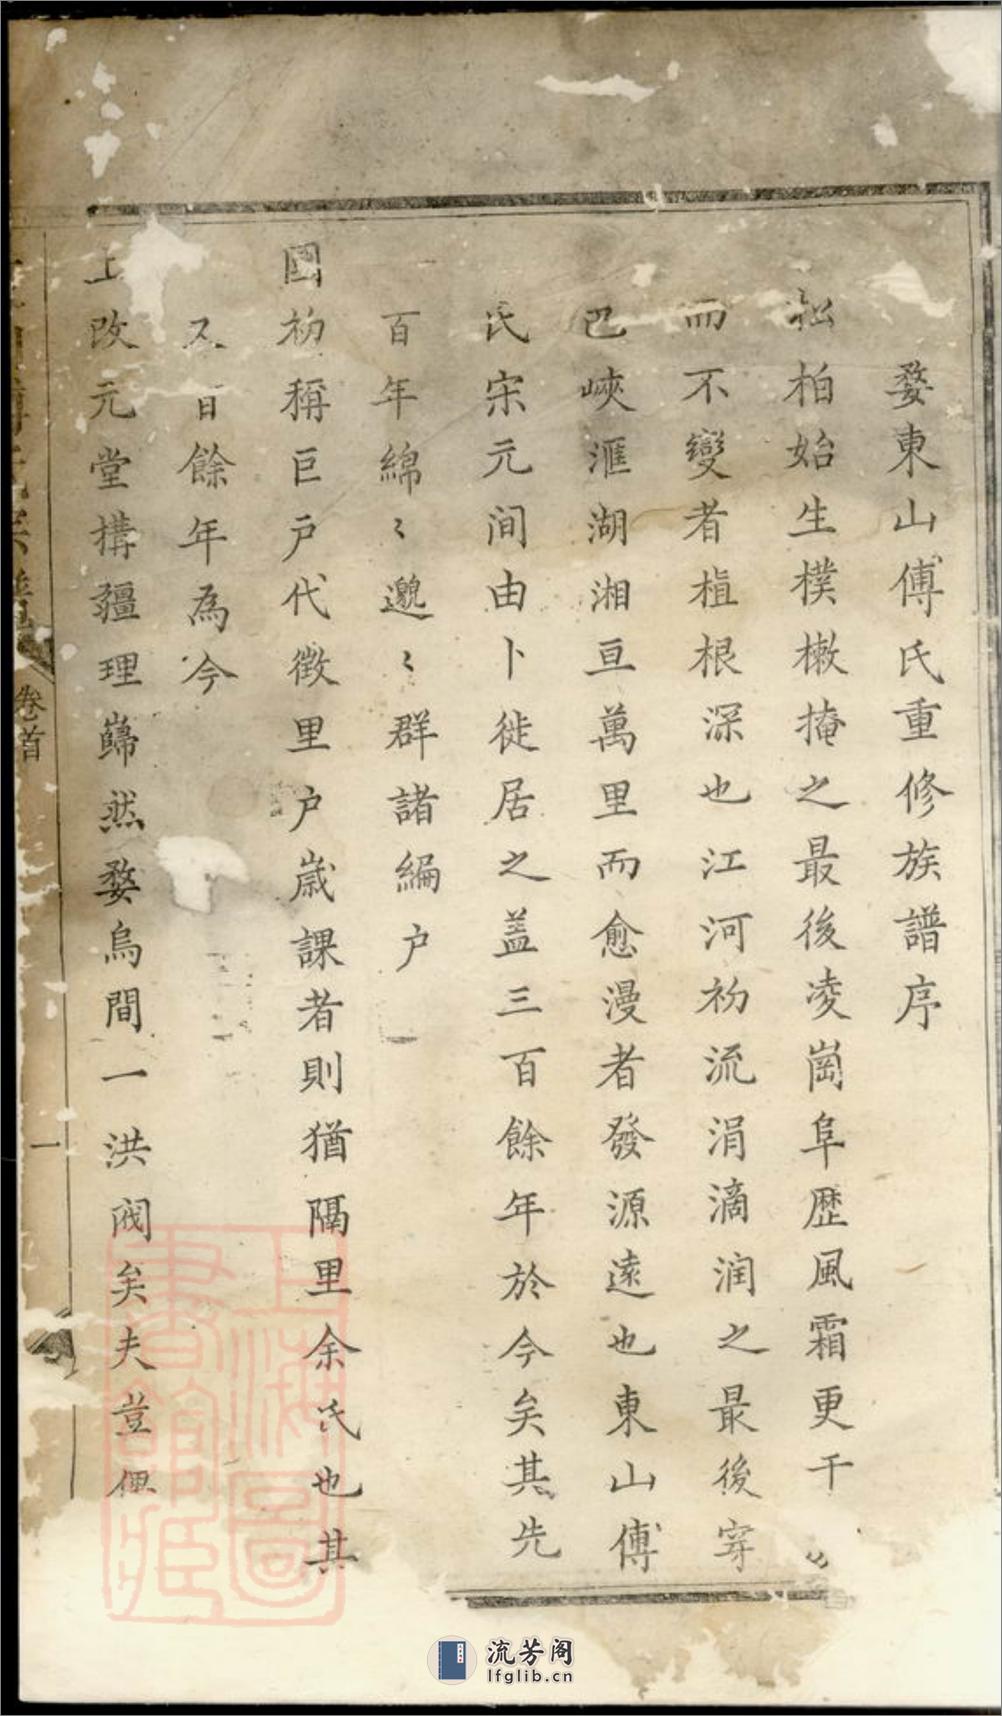 婺東山傅氏重修族譜序
松柏始生樸樕掩之最後凌崗阜歷風霜更千
而不變者植根深也江河初流涓滴润之最後穿
巴峽滙湖湘亘萬里而愈漫者發源遠也東山傅
氏宋元间由卜徙居之盖三百餘年於今矣其先
百年綿〻邈〻群諸編户
國初稱巨户代徵里户歲課者則猶隔里余氏也其
又百餘年為今
上改元堂構疆理巋然婺烏間一洪阀矣夫豈俚
卷首
一
上海圖書館藏
流芳阁
lfglib.cn